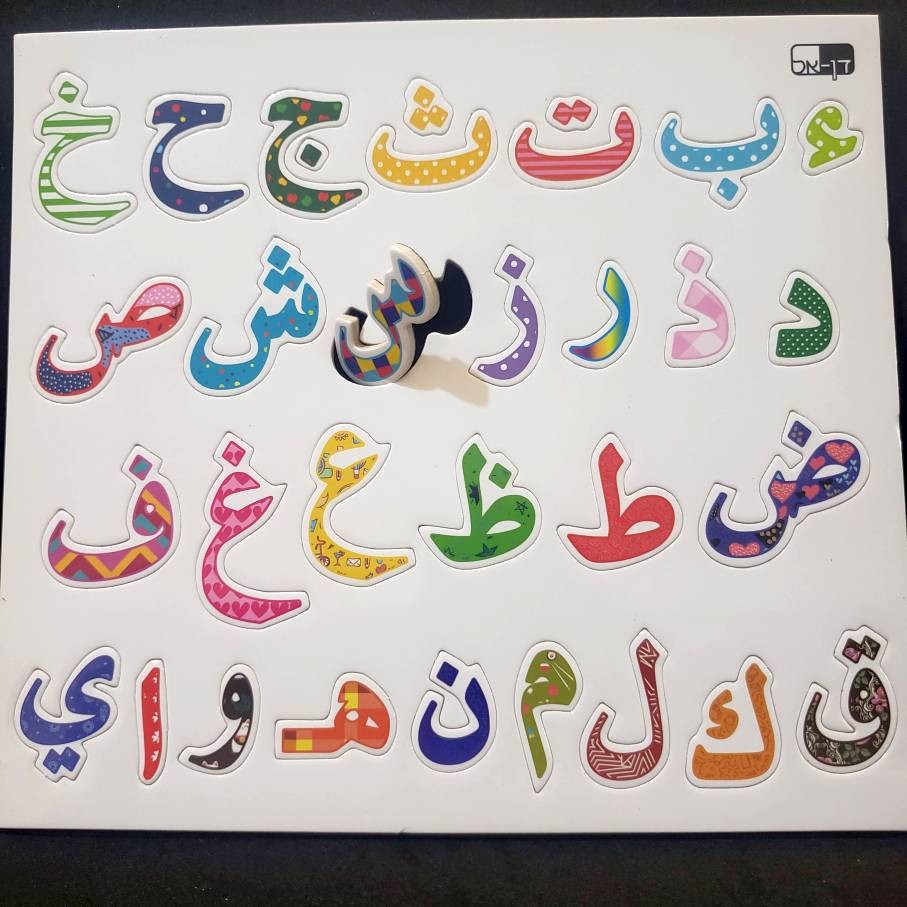 דן-אל
ء ب ت ث ج ح خ
د ذ ر ز س ش ص
ض ط ظ ع غ ف
ق ك ل م ن هـ و ا ي